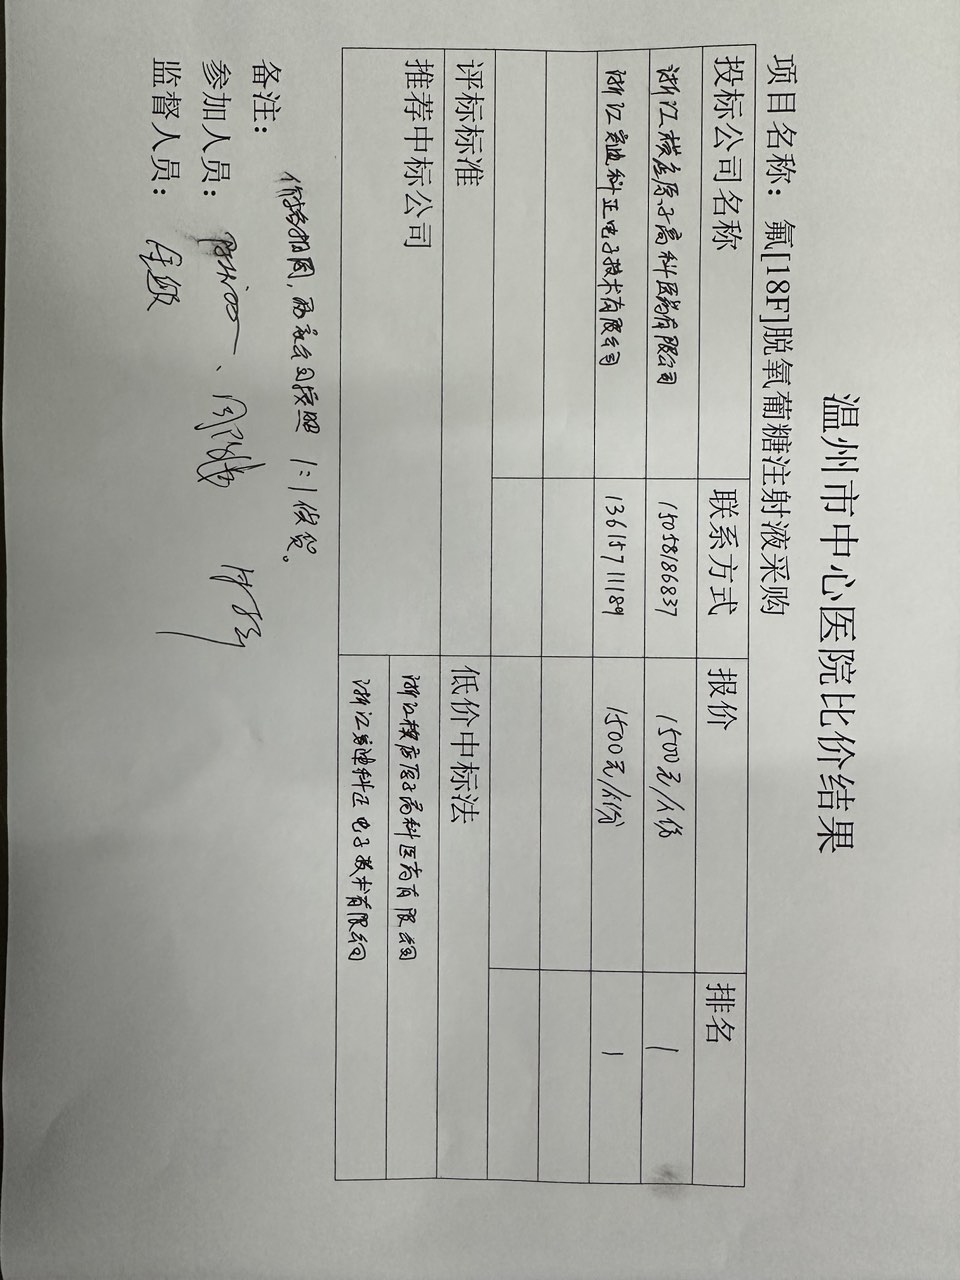 温州市中心医院比价结果
项目名称：氟[18F]脱氧葡糖注射液采购
投标公司名称 联系方式 报价 排名
浙江核素原子高科医药有限公司 15058186837 1500元/人份 1
浙江 科正电子技术有限公司 13615711189 1500元/人份 1
评标标准 低价中标法
推荐中标公司 浙江核 原子高科医药有限公司
浙江 科正电子技术有限公司
备注：价格相同，两家公司按照1:1供货。
参加人员：
监督人员：